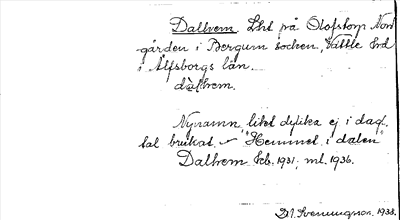 Dalhem. Lht på Olofstorp Nord
gården i Bergum socken, Vättle hd
i Älfsborgs län.
dàlhem.
Nynamn likt dylika ej i dagl.
tal brukat. — "Hemmet i dalen"
Dalhem Eeb. 1931; ml. 1936.
D. 1. Svenningson. 1938.